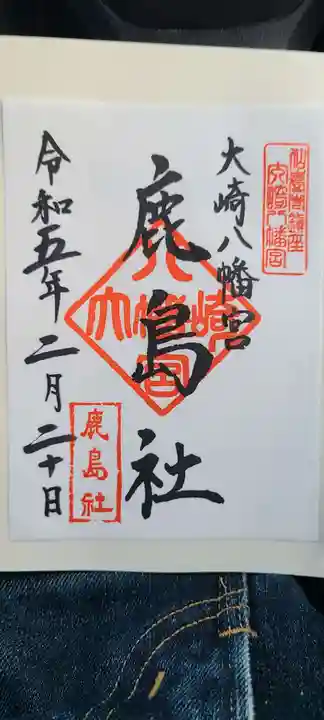 仙臺市鎮座
大崎八幡宮
大崎八幡宮
鹿島社
大崎八幡宮
鹿島社
令和五年二月二十日